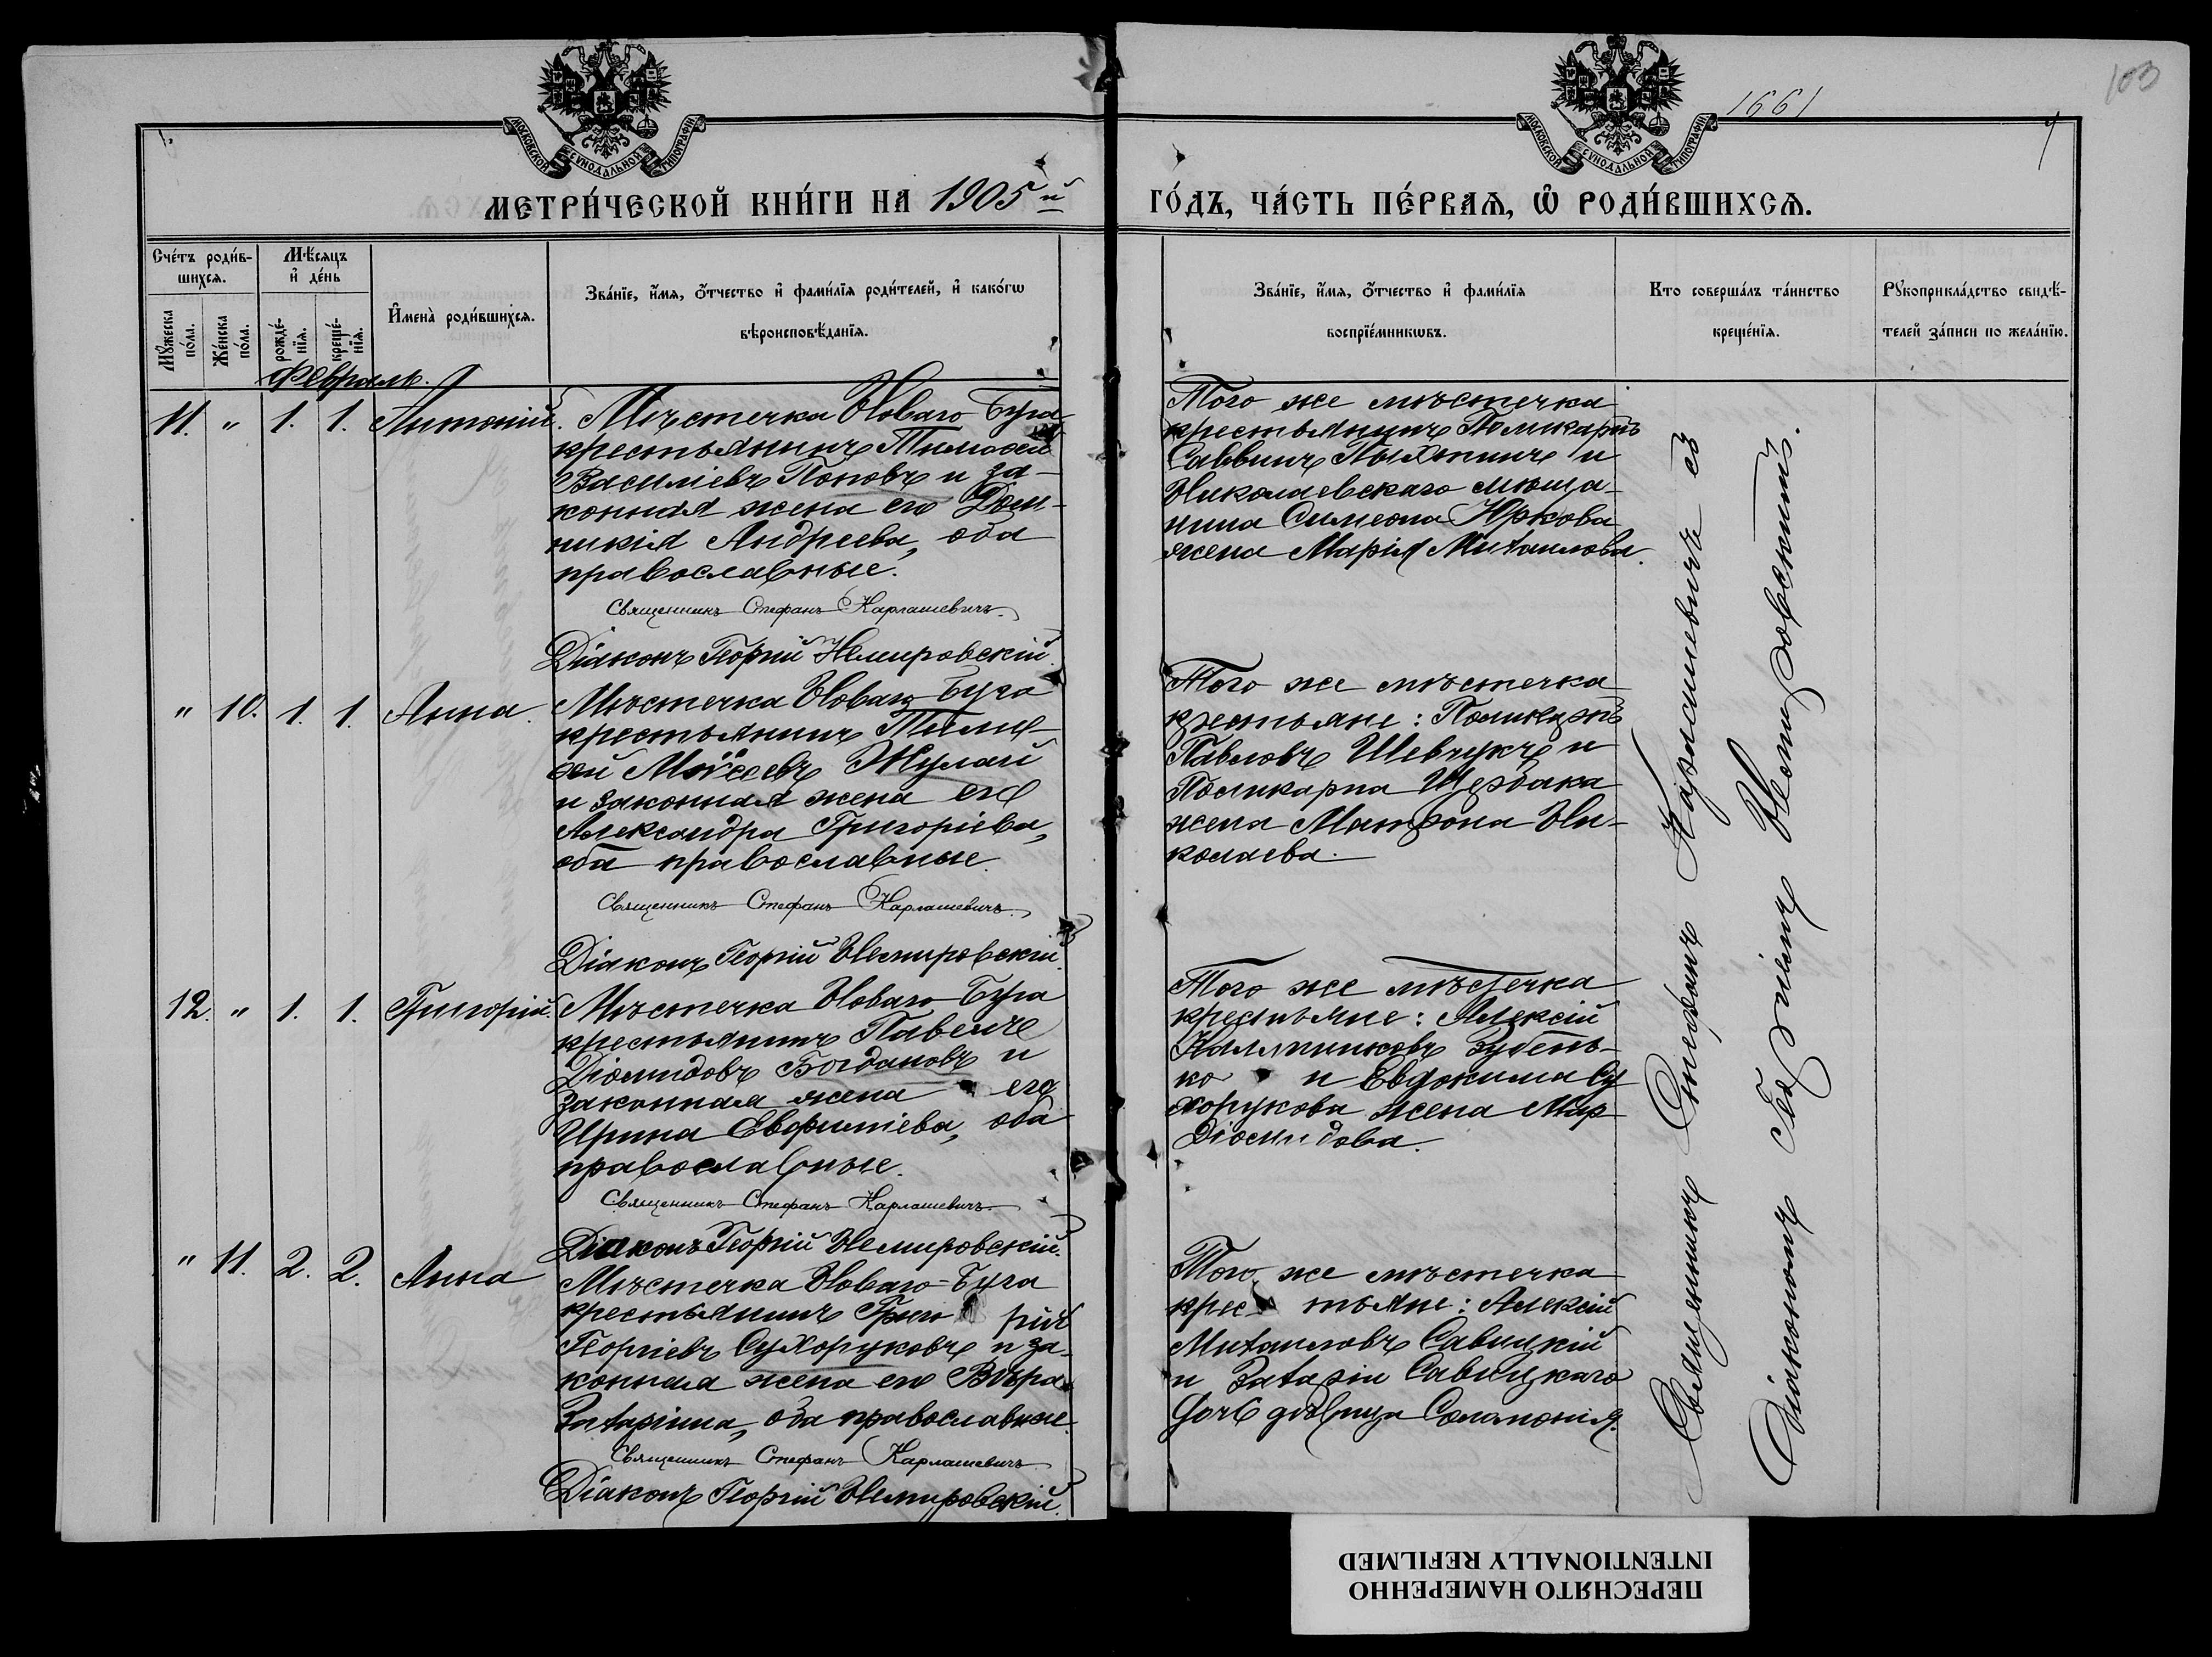 103
1661
МОСКОВСКОЙ СУНОДАЛЬНОЙ ТИПОГРАФІИ
МОСКОВСКОЙ СУНОДАЛЬНОЙ ТИПОГРАФІИ
МЕТРИ́ЧЕСКОЙ КНИ́ГИ НА 1905й
ГО́ДЪ, ЧА́СТЬ ПЕ́РВАѦ, Ѡ РОДИ́ВШИХСѦ.
Счéтъ роди́в-
шихсѧ.
Мѣ́сѧцъ
и҆ дéнь
Мꙋ́жеска
по́ла.
Же́нска
по́ла.
рожде́-
нїѧ.
креще́-
нїѧ.
И҆мена̀ роди́вшихсѧ.
Зва́нїе, и҆́мѧ, о҆́тчество и҆ фами́лїѧ роди́телей, и҆ како́гѡ
вѣроисповѣ́данїѧ.
Зва́нїе, и҆́мѧ, о҆́тчество и҆ фами́лїѧ
воспрїе́мникѡвъ.
Кто соверша́лъ та́инство
креще́нїѧ.
Рꙋкоприкла́дство свидѣ́-
телей за́писи по жела́нїю.
Февраль.
11. " 1. 1. Антоній.
Мѣстечка Новаго Буга
крестьянинъ Тимоѳей
Василіевъ Поповъ и за-
конная жена его Дом-
никія Андреева, оба
православные.
Священникъ Стефанъ Карлашевичъ.
Діаконъ Георгій Немировскій.
Того же мѣстечка
крестьянинъ Поликарпъ
Саввинъ Пыхтинъ и
Николаевскаго мѣща-
нина Симеона Юркова
жена Марія Михаилова.
" 10. 1. 1. Анна.
Мѣстечка Новаго Буга
крестьянинъ Тимо-
ѳей Моѵсеевъ Жулай
и законная жена его
Александра Григоріева,
оба православные.
Священникъ Стефанъ Карлашевичъ.
Діаконъ Георгій Немировскій.
Того же мѣстечка
крестьяне: Поликарпъ
Павловъ Шевчукъ и
Поликарпа Щербака
жена Матрона Ни-
колаева.
12. " 1. 1. Григорій.
Мѣстечка Новаго Буга
крестьянинъ Павелъ
Діомидовъ Богдановъ и
законная жена его
Ирина Евфиміева, оба
православные.
Священникъ Стефанъ Карлашевичъ.
Діаконъ Георгій Немировскій.
Того же мѣстечка
крестьяне: Алексій
Каллиниковъ Зубень-
ко и Евдокима Су
хорукова жена Мар
Діомидова.
" 11. 2. 2. Анна
Мѣстечка Новаго-Буга
крестьянинъ Григо рій
Георгіевъ Сухоруковъ и за-
конная жена его Вѣра
Захаріина, оба православные.
Священникъ Стефанъ Карлашевичъ
Діаконъ Георгій Немировскій.
Того же мѣстечка
крес тьяне: Алексій
Михаиловъ Савицкій
и Захаріи Савицкаго
дочь дѣвица Соломонія.
Священникъ Стефанъ Карлашевичъ съ
Діакономъ Георгіемъ Немировскимъ.
ПЕРЕСНЯТО НАМЕРЕННО
INTENTIONALLY REFILMED